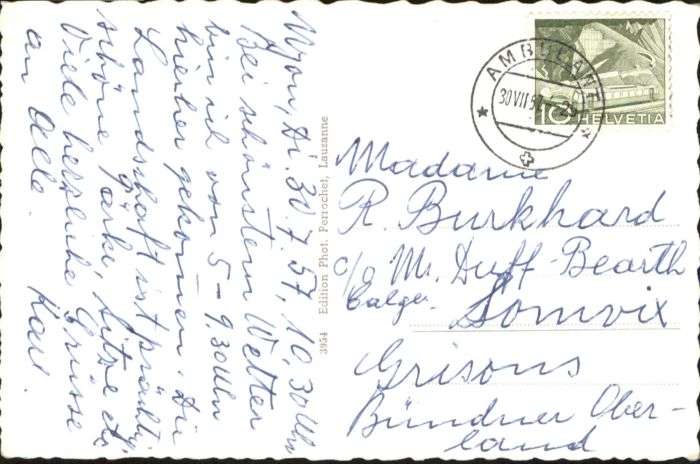 Nyon, Di. 30.7.57, 10,30 Uhr
Bei schönstem Wetter
bin ich von 5 – 9.30 Uhr
hierher gekommen. Die
Landschaft ist prächtig,
schöne Pärke, Sitze etc.
Viele herzliche Grüsse
an Alle. Karl.
3954 Edition Phot. Perrochet, Lausanne
AMBULANT
30 VII 57
10 HELVETIA
Madame
R. Burkhard
c/o Mr. Duff-Bearth
Somvix
Grisons
Bündner Ober-
land